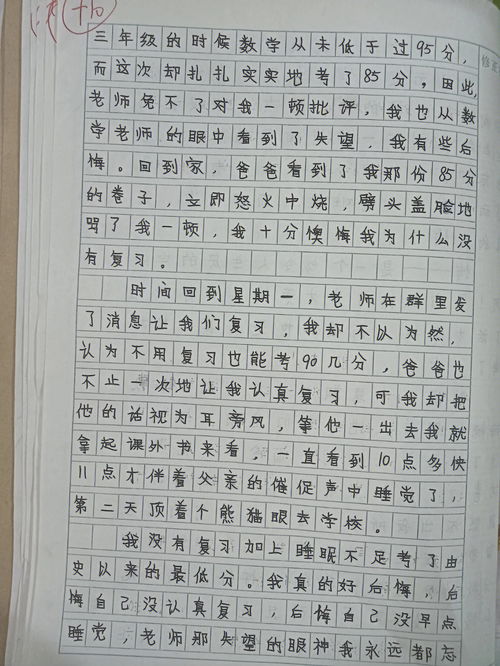 三年级的时候数学从未低于过95分，
而这次却扎扎实实地考了85分，因此，
老师免不了对我一顿批评，我也从数
学老师的眼中看到了失望，我有些后
悔。回到家，爸爸看到了我那份85分
的卷子，立即怒火中烧，劈头盖脸地
骂了我一顿，我十分懊悔我为什么没
有复习。
时间回到星期一，老师在群里发
了消息让我们复习，我却不以为然，
认为不用复习也能考90几分，爸爸也
不止一次地让我认真复习，可我却把
他的话视为耳旁风，等他一出去我就
拿起课外书来看，一直看到10点多快
11点才伴着父亲的催促声中睡觉了，
第二天顶着个熊猫眼去学校。
我没有复习加上睡眠不足考了由
史以来的最低分。我真的好后悔，后
悔自己没认真复习，后悔自己没早点
睡觉，老师那失望的眼神我永远都忘